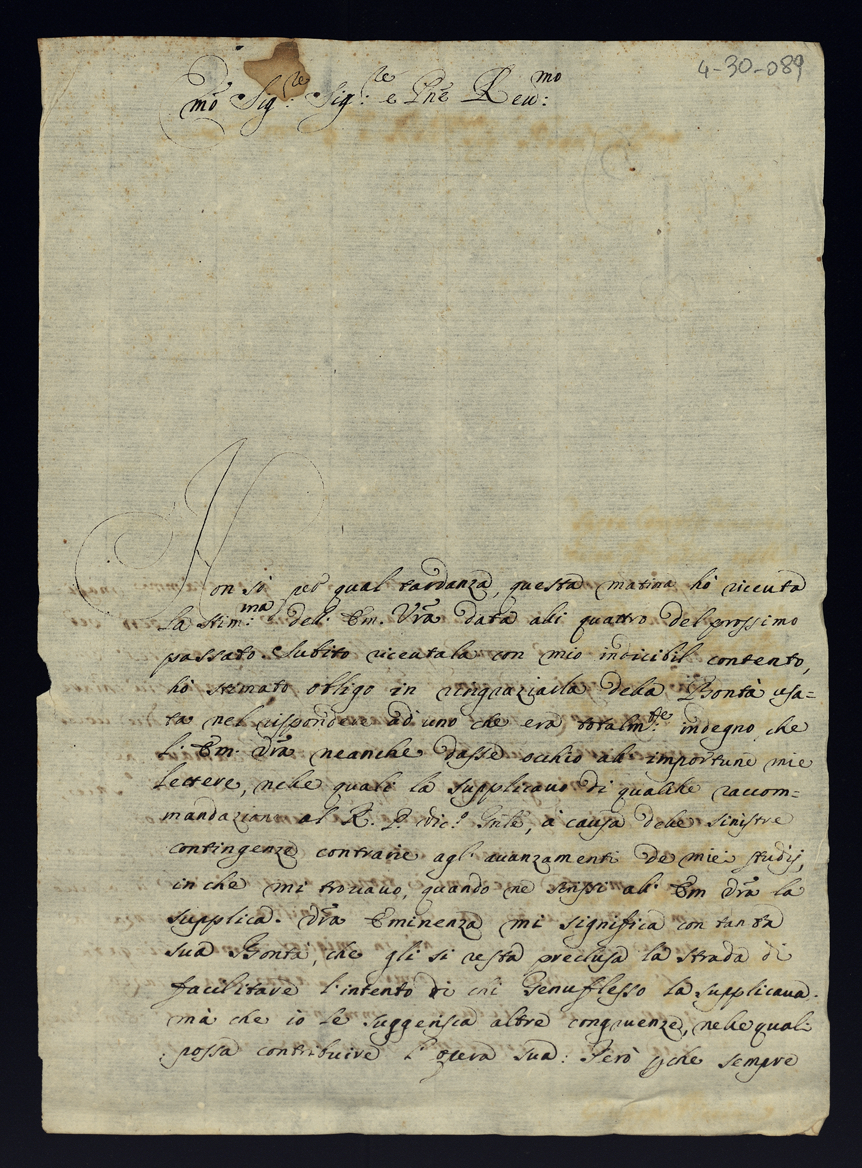 4-30-089
Emo Sig:re Sig:re e Pne Reu:mo
Non si per qual tardanza, questa matina hò riceuta
la stim:ma dell' Em. Vra data alli quattro del prossimo
passato e subito riceutala con mio indicibil contento,
hò stimato obligo in ringraziarla della Bontà usa=
ta nel rispondere ad uno che era totalm:te indegno, che
l' Em. Vra neanche dasse occhio all' importune mie
lettere, nelle quali la supplicauo di qualche raccom=
mandazione al R. P. Vic.o Gnle, à causa delle sinistre
contingenze contrarie agl' auanzamenti de miei studij,
in che mi trouauo, quando ne scrissi all' Em Vra la
supplica. Vra Eminenza mi significa con tanta
sua Bontà, che gli si resta preclusa la strada di
facilitare l'intento di chi Genuflesso la supplicaua.
mà che io le suggerisca altre congruenze, nelle quali
possa contribuire l' opera sua: Però pche sempre